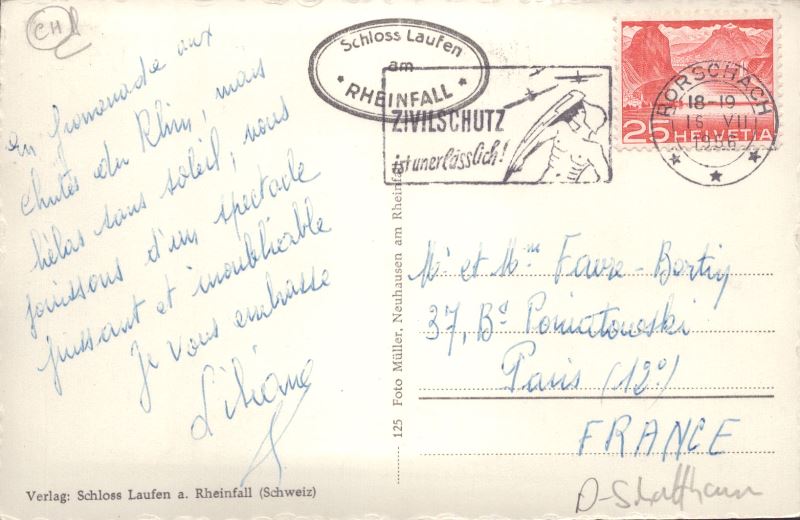 CH
en promenade aux
chutes du Rhin, mais
hélas sans soleil, nous
jouissons d'un spectacle
puissant et inoubliable
Je vous embrasse
Liliane
Verlag: Schloss Laufen a. Rheinfall (Schweiz)
125 Foto Müller, Neuhausen am Rheinfall
Schloss Laufen
am
* RHEINFALL *
ZIVILSCHUTZ
ist unerlässlich!
25 HELVETIA
RORSCHACH
18-19
15 VII
1956
Mr et Mme Favre-Bortry
37, Bd Poniatowski
Paris (12°)
FRANCE
D-Schaffhausen